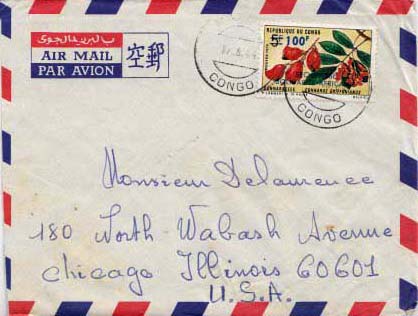 بالبريد الجوى
AIR MAIL
PAR AVION
空郵
REPUBLIQUE DU CONGO
5F 100F
CONNARACEES
CONGO
CONGO
Monsieur Delaurence
180 North Wabash Avenue
Chicago Illinois 60601
U.S.A.